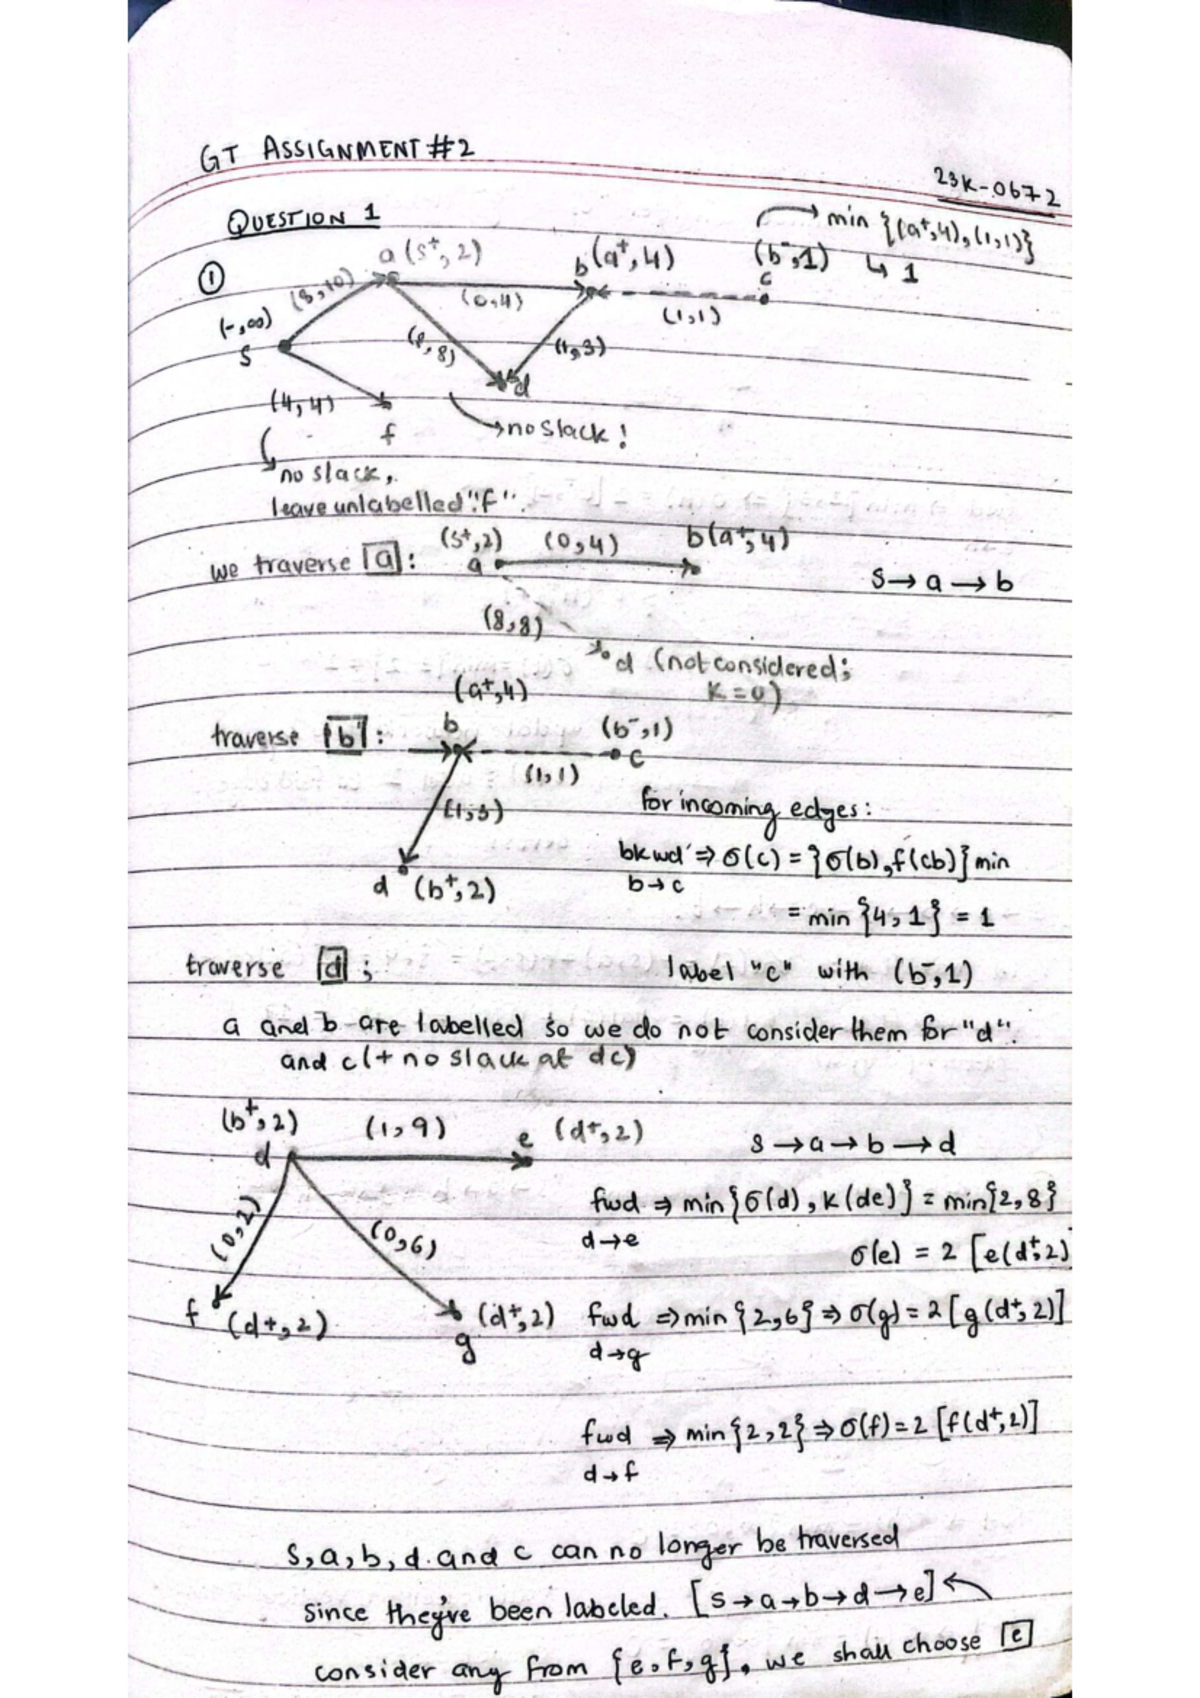 GT ASSIGNMENT #2
23K-0672
QUESTION 1
min {(a⁺,4),(1,1)}
↳ 1
①
a (s⁺, 2)
b (a⁺, 4)
(b⁻,1)
c
(8,10)
(0,4)
(1,1)
(-,∞)
s
(8,8)
(1,3)
d
(4,4)
f
→ no slack!
no slack,
leave unlabelled "f".
we traverse [a]:
(s⁺,2)
a
(0,4)
b(a⁺,4)
s → a → b
(8,8)
d (not considered;
K = 0)
(a⁺,4)
traverse [b]:
b
(b⁻,1)
c
(1,1)
(1,3)
d (b⁺,2)
for incoming edges:
bkwd ⇒ σ(c) = {σ(b), f(cb)} min
b→c
= min {4, 1} = 1
label "c" with (b⁻,1)
traverse [d];
a and b are labelled so we do not consider them for "d".
and c (+ no slack at dc)
(b⁺,2)
d
(1,9)
e (d⁺,2)
s → a → b → d
(0,2)
(0,6)
fwd ⇒ min{σ(d), K(de)} = min{2,8}
d→e
σ(e) = 2 [e(d⁺,2)
f (d+,2)
(d⁺,2)
g
fwd ⇒ min {2,6} ⇒ σ(g) = 2 [g(d⁺,2)]
d→g
fwd ⇒ min {2,2} ⇒ σ(f) = 2 [f(d⁺,2)]
d→f
s,a,b,d and c can no longer be traversed
since they've been labeled. [s→a→b→d→e] ←
consider any from {e,f,g}, we shall choose [e]